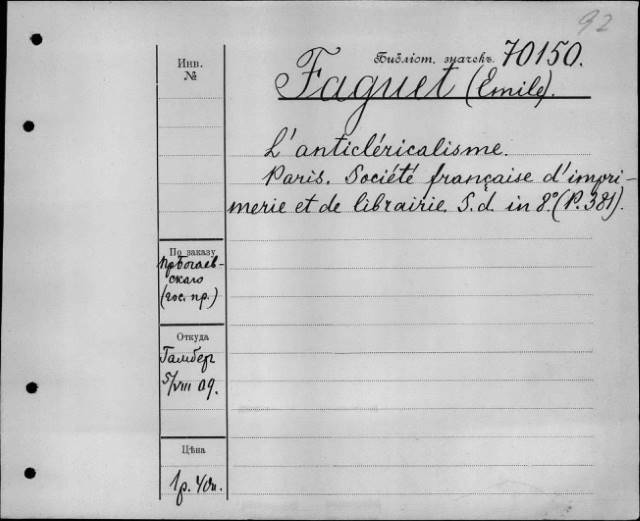 92
Библіот. значекъ 70150.
Инв.
№
Faguet (Emile).
L'anticléricalisme.
Paris. Société française d'impri-
merie et de librairie. S.d. in 8º. (P. 381).
По заказу
скаго
(гос. пр.)
Откуда
5/VIII 09.
Цѣна
1р. 40к.